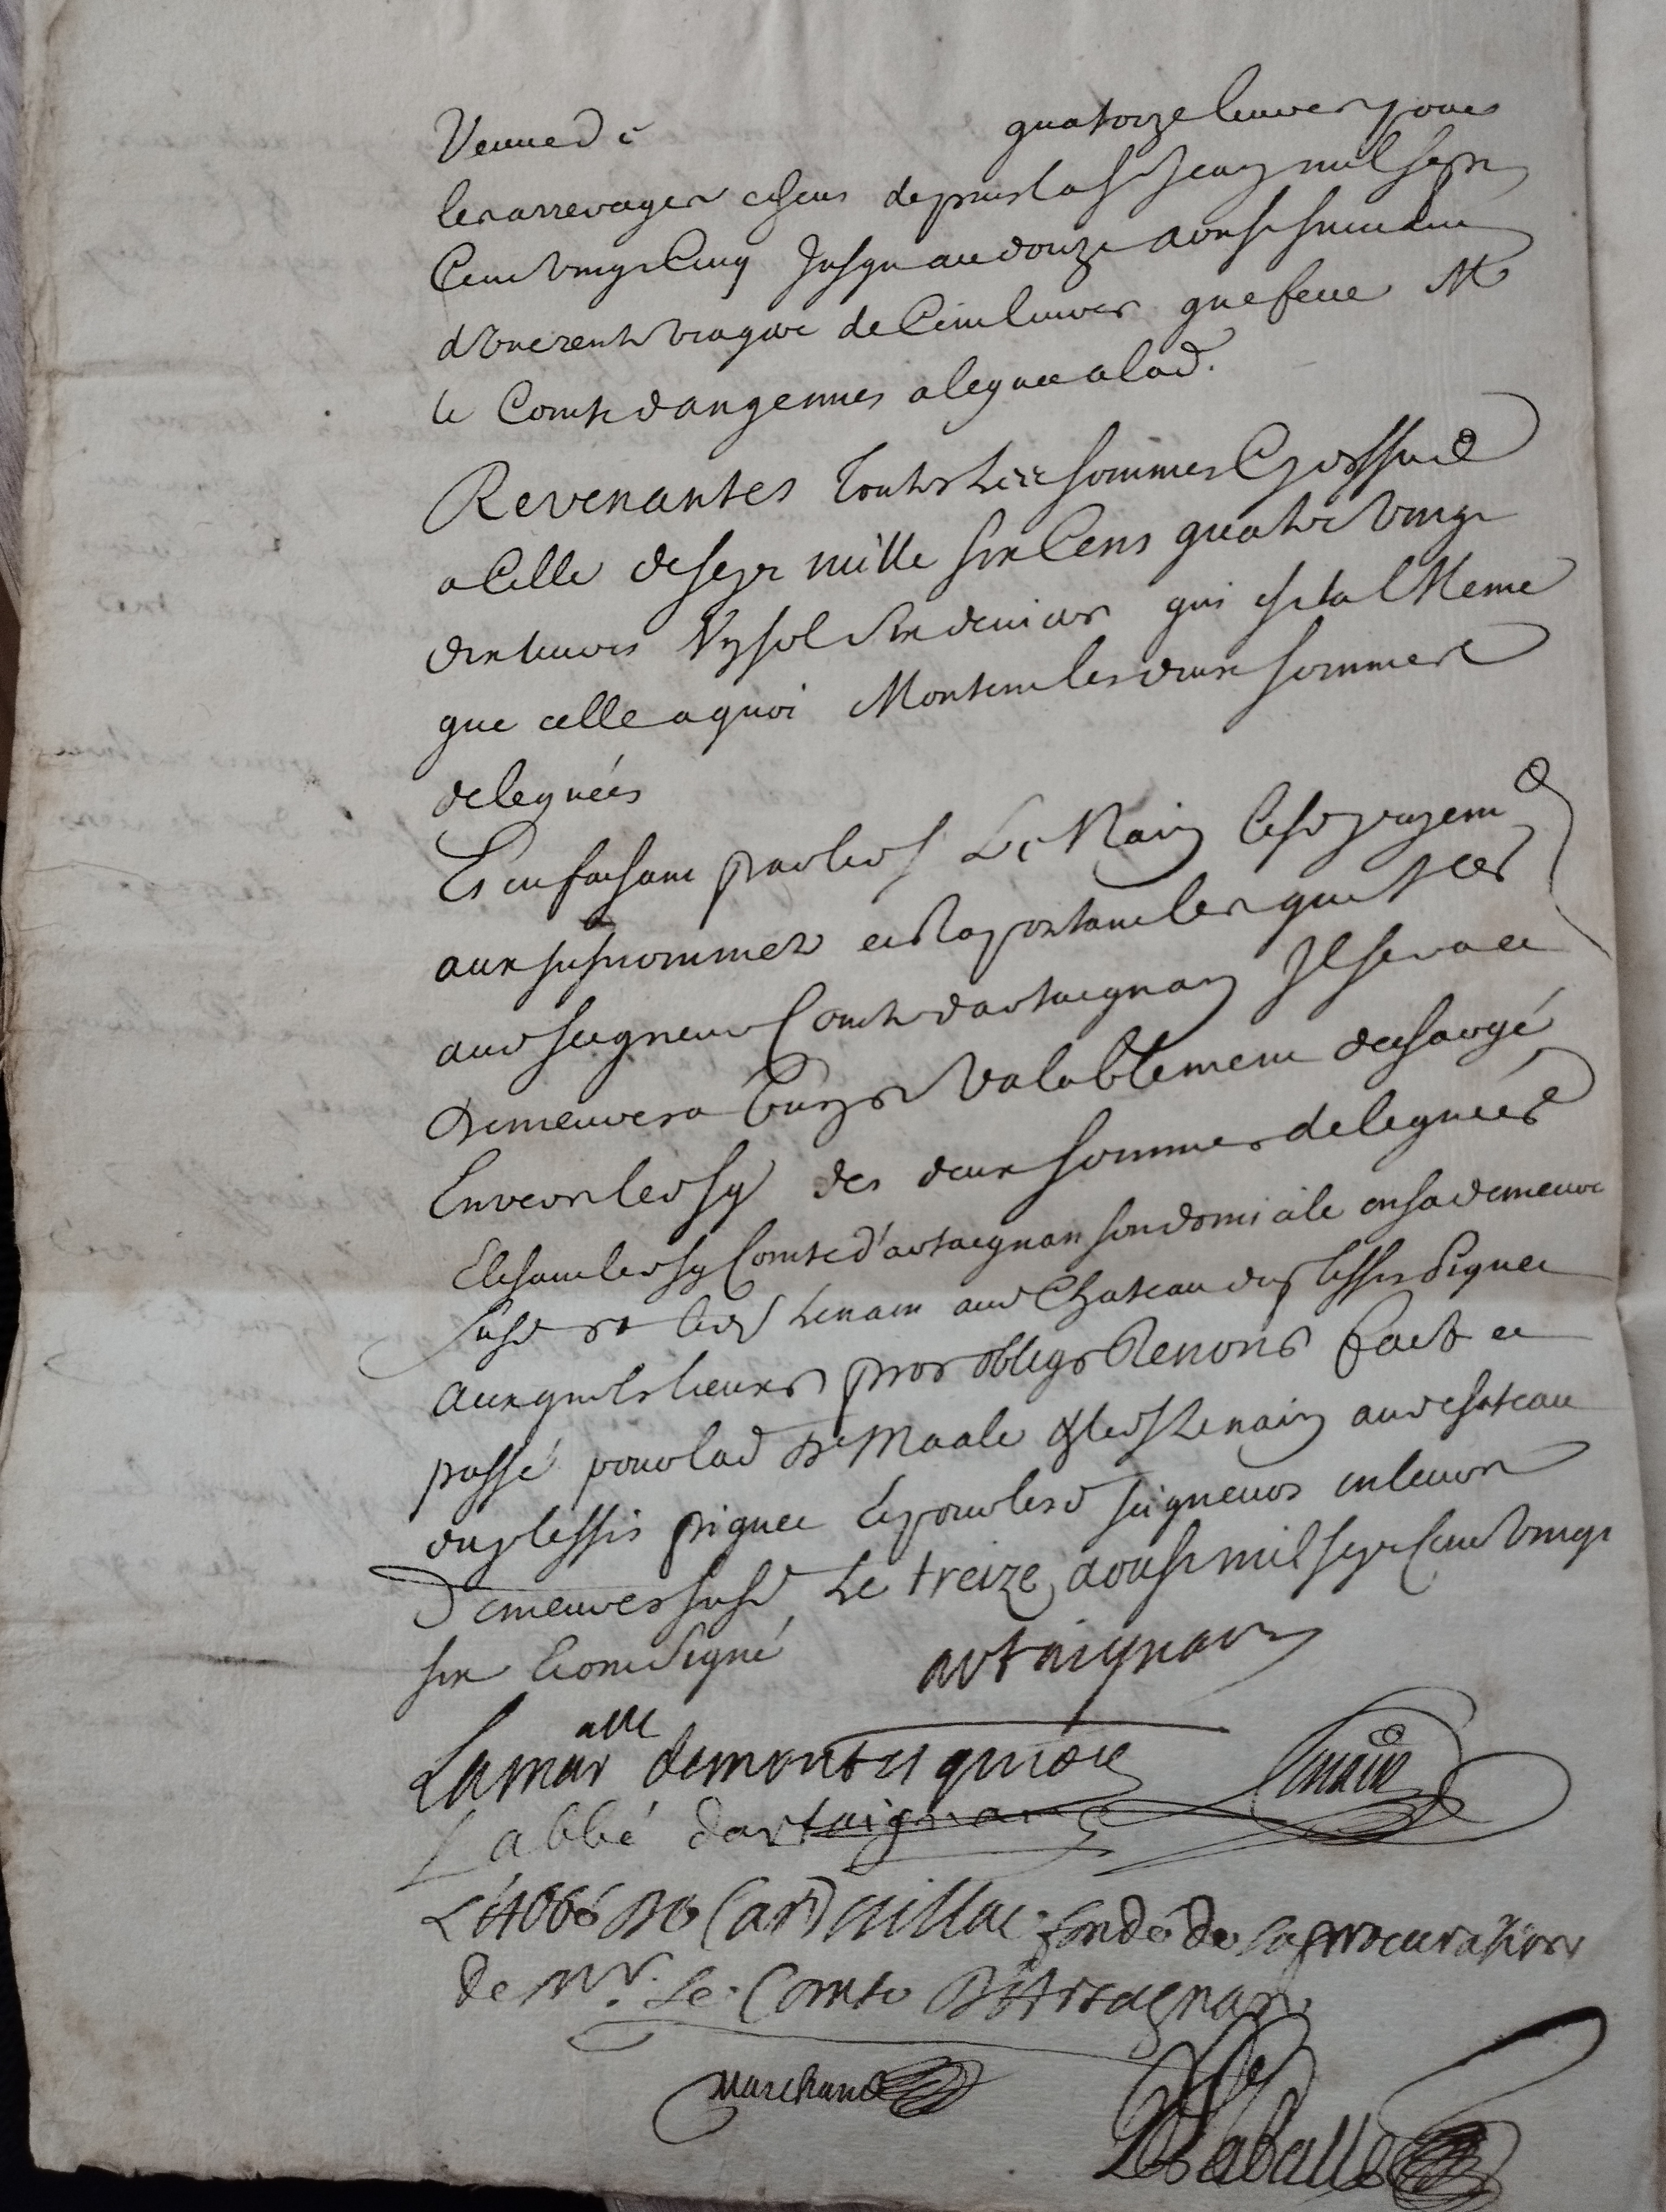 Veuve de quatorze livres pour
les arrerages echeus depuis la St Jean mil sept
Cent vingt Cinq Jusqu au douze aoust suivant
d'une rente viagere de Cent livres que feue Mr
le Comte dangennes a leguee a lad.
Revenantes Toutes Les sommes Cy dessus
a Celle de sept mille six Cens quatre vingt
dix livres sol six deniers qui est la Meme
que celle a quoi Montent les deux sommes
deleguées
Et en faisant par led S. Le Nain lesd payemt
aux susnommez et Raportant les quittces
aud seigneur Comte dartaignan Il sera et
demeurera bien et valablement dechargé
Envers led sgr des deux sommes deleguées
Elisant led sgr Comte d'artaignan son domicile en sa demeure
susd et led S Lenain aud Chateau duplessis piquet
auxquels lieux promt obligt Renont fait et
passé pour lad De Maale & led S Lenain aud chateau
duplessis piquet Et pour lesd seigneurs en leurs
Demeures susd Le treize aoust mil sept Cent vingt
six Et ont Signé
artaignan
Lamar alle demontesquiou
Lenain
L abbé dartaignan
L'Abbé De Cardaillac fondé de la procuration
de Mr. Le Comte D'Artagnan
Marchand
DeLaballe